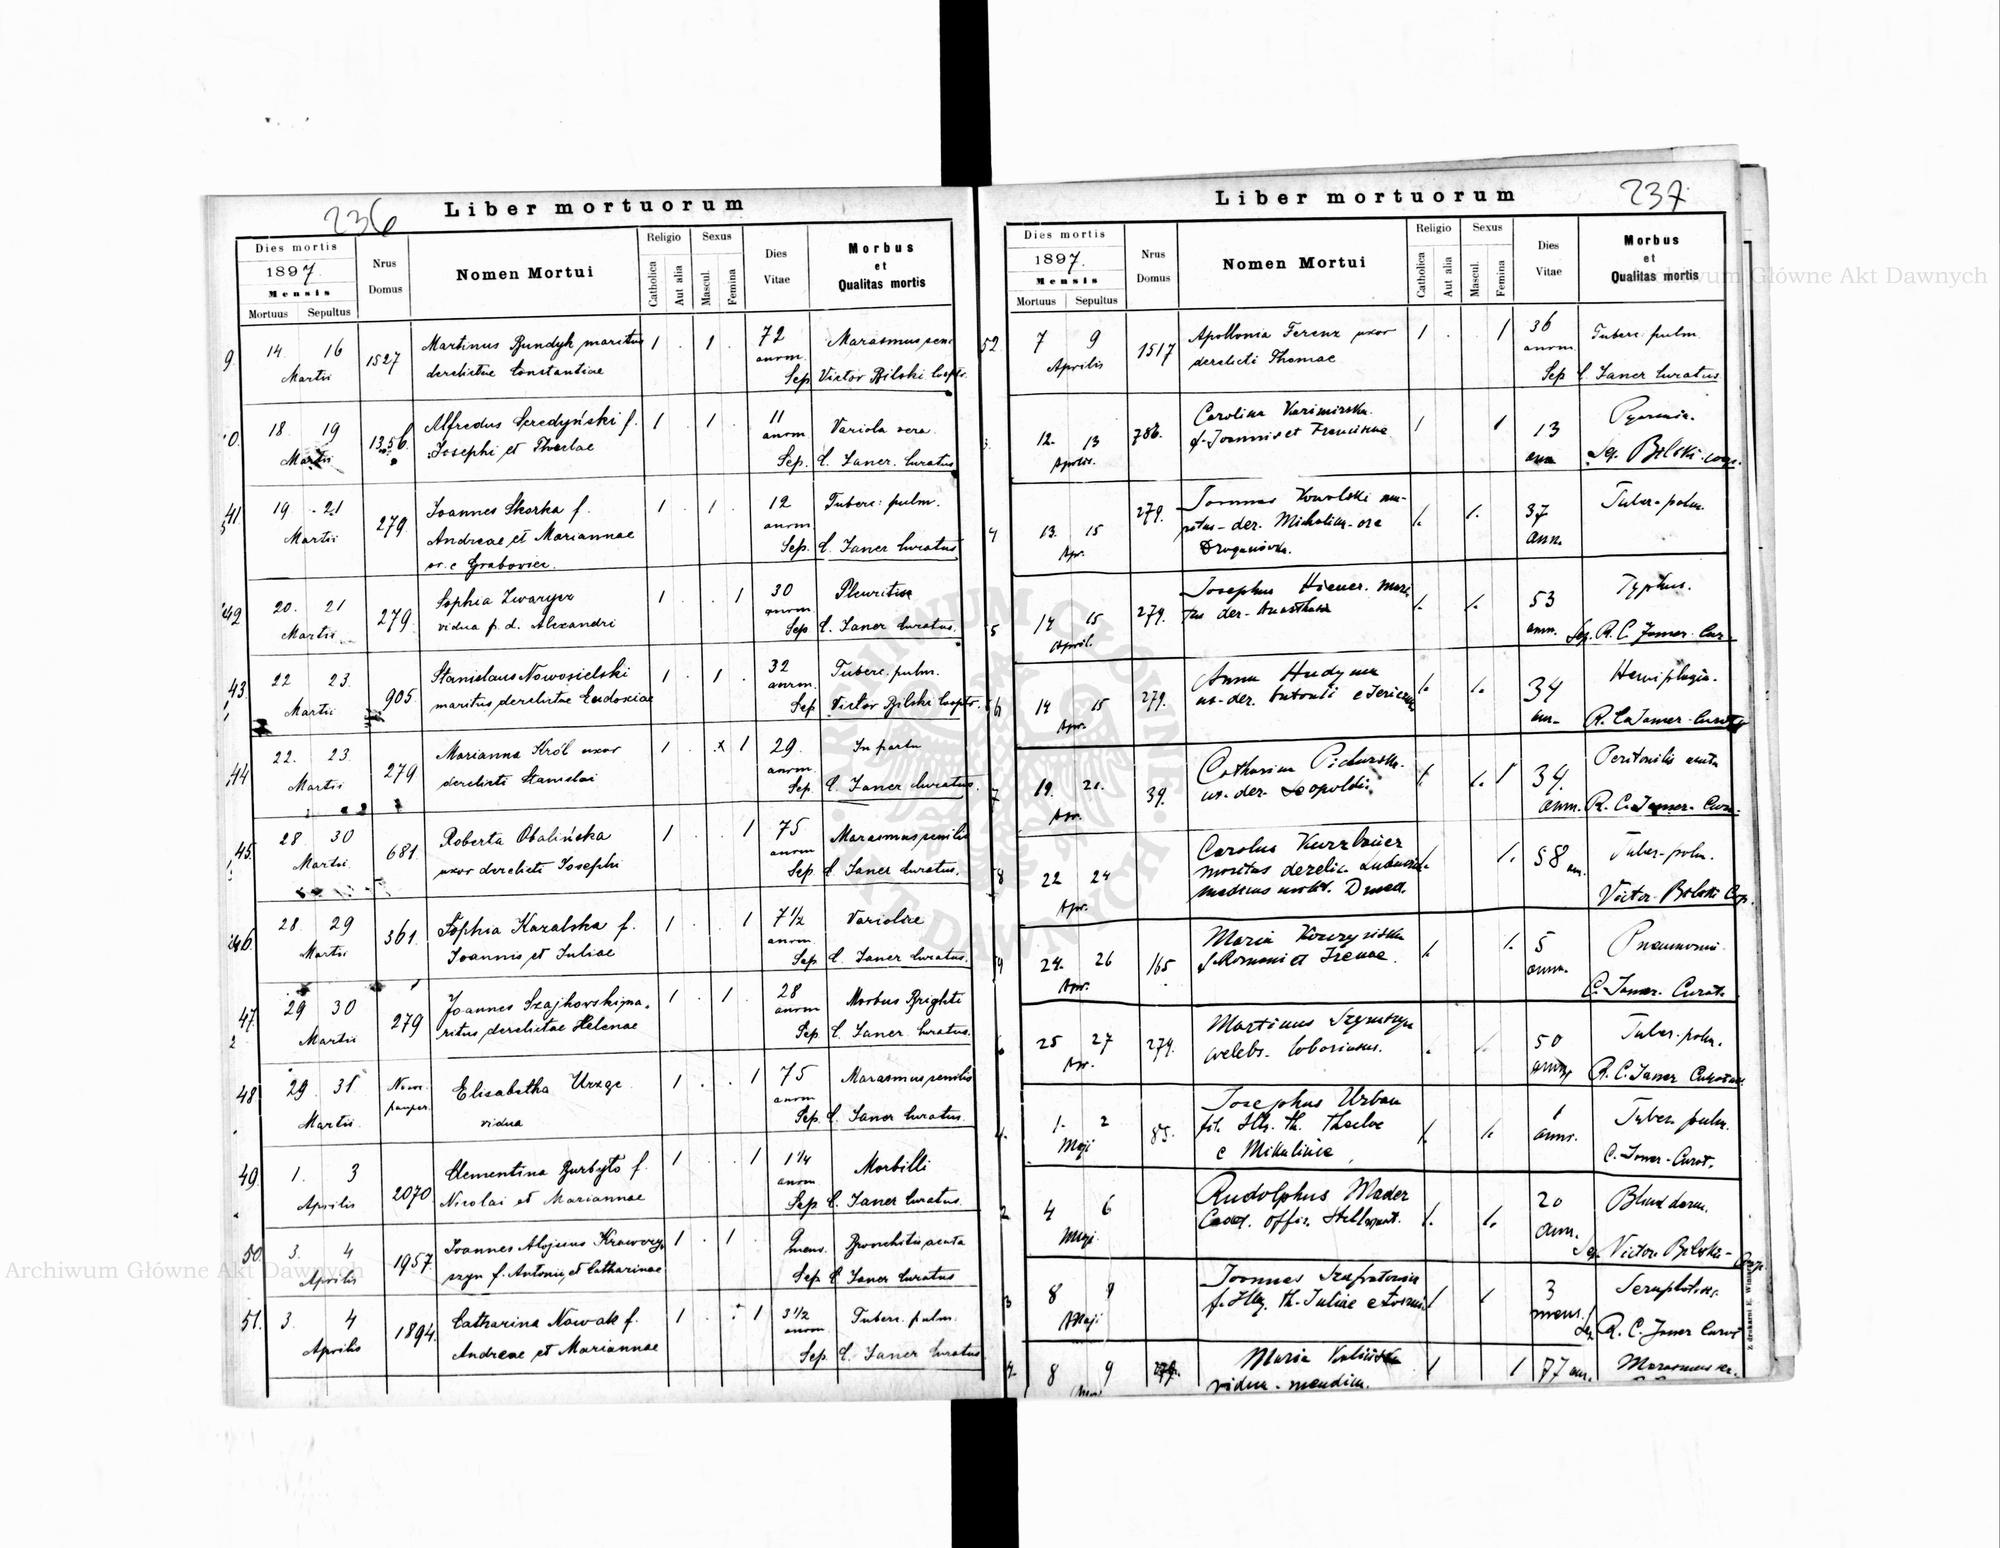 236
Liber mortuorum
Dies mortis
1897.
Mensis
Mortuus Sepultus
Nrus
Domus
Nomen Mortui
Religio
Catholica
Aut alia
Sexus
Mascul.
Femina
Dies
Vitae
Morbus
et
Qualitas mortis
9. 14 16 1527 Martinus Bundyk maritus 1 . 1 . 72 Marasmus seni
Martii derelictae Constantiae anorm. Sep. Victor Bilski Coop.
0. 18 19 1356. Alfredus Seredyński f. 1 . 1 . 11 Variola vera
Martii Josephi et Theclae anorm. Sep. C. Janer. Curatus
41. 19 21 279. Joannes Skorka f. 1 . 1 . 12 Tuberc: pulm.
Martii Andreae et Mariannae anorm. Sep. C. Janer Curatus
or. e Grabowiec.
42 20. 21 279 Sophia Zwarycz 1 . . 1 30 Pleuritis
Martii vidua p. d. Alexandri anorm. Sep C. Janer Curatus.
43 22 23. 905. Stanislaus Nowosielski 1 . 1 . 32 Tuberc. pulm.
Martii maritus derelictae Eudoxiae anorm. Sep Victor Bilski Coop.
44 22. 23. 279 Marianna Król uxor 1 . x 1 29. In partu
Martii derelicti Stanislai anorm. Sep. C. Janer Curatus.
45. 28 30 681. Roberta Obalińska 1 . . 1 75 Marasmus senilis
Martii uxor derelicti Josephi anorm Sep. C. Janer Curatus.
46 28. 29 361. Sophia Kazalska f. 1 . . 1 7 1/2 Variolae
Martii Joannis et Juliae anorm. Sep C. Janer Curatus.
47. 29 30 279 Joannes Szajkowski ma- 1 . 1 . 28 Morbus Brighti
Martii ritus derelictae Helenae anorm Sep. C. Janer Curatus.
48 29. 31 pauper. Elisabetha 1 . . 1 75 Marasmus senilis
Martii vidua anorm Sep. C. Janer Curatus.
49. 1. 3 2070 Clementina Burbyto f. 1 . . 1 1 1/4 Morbilli
Aprilis Nicolai et Mariannae anorm Sep C. Janer Curatus.
50. 3. 4 1957. Joannes Alojsius Krawczy 1 . 1 . 9 mens. Bronchitis acuta
Aprilis szyn f. Antonii et Catharinae Sep C. Janer Curatus
51. 3. 4 1894. Catharina Nowak f. 1 . . 1 3 1/2 Tuberc. pulm.
Aprilis Andreae et Mariannae anorm. Sep. C. Janer Curatus
237
Liber mortuorum
Dies mortis
1897.
Mensis
Mortuus Sepultus
Nrus
Domus
Nomen Mortui
Religio
Catholica
Aut alia
Sexus
Mascul.
Femina
Dies
Vitae
Morbus
et
Qualitas mortis
52. 7 9 1517 Apollonia Ferenz uxor 1 . . 1 36 Tuberc. pulm.
Aprilis derelicti Thomae anorm. Sep C. Janer Curatus
3. 12. 13 786. Carolina Kazimirska 1 1 13 Pyaemia.
Aprilis. f. Joannis et Franciscae ann Sep. Bilski coop.
4 13. 15 279. Joannes Kowalski ma- 1. 1. 37 Tuber- pulm.
Apr. ritus- der. Michalin- ore ann.
5 14 15 279. Josephus mari 1. 1. 53 Typhus.
April. tus der- Anasthasia ann. Sep. R. C. Janer. Cur-
6 14 15 279. Anna Hudyma 1. 1. 34 Hemiplegia.
Apr. ux- der. Antonii e ann- R. C. Janer- Curatus
7 19. 21. 39. Catharina 1 1. 1 34. Peritonitis acuta
Apr. ux- der- Leopoldi. anm. R. C. Janer- Cura-
8 22 24 Carolus Kurzbauer 1. 58 an. Tuber- pulm.
Apr. maritus derelic. Ludovic. Victor- Bilski Cop.
9 24. 26 165 Maria 1. 1. 5 Pneumonia
Apr. f. Romani et Irenae. anm. C. Janer- Curat.
6 25 27 279. Martinus 50 Tuber- pulm.
Apr. caelebs- laboriosus. R. C. Janer Curatus.
1. 2 85. Josephus Urban 1. 1. 1 Tuber. pulm.
Maji fil. Ill. th. Theclae anns. C. Janer- Curat.
e Mikulińce
2 4 6 Rudolphus Mader 1. 1. 20
Maji Cad. offic. Stellvert. ann. Sep. Victor Bilski- Coop.
3 8 9 Joannes 1 1 3
Maji f. Ill. th. Juliae e mens. Sep. R. C. Janer Curat
4. 8 9 279. Maria 1 1 77 an. Marasmus se.
vidua - mendica.
Z drukarni E. Winiarz
ARCHIWUM GŁÓWNE AKT DAWNYCH
Archiwum Główne Akt Dawnych
Archiwum Główne Akt Dawnych